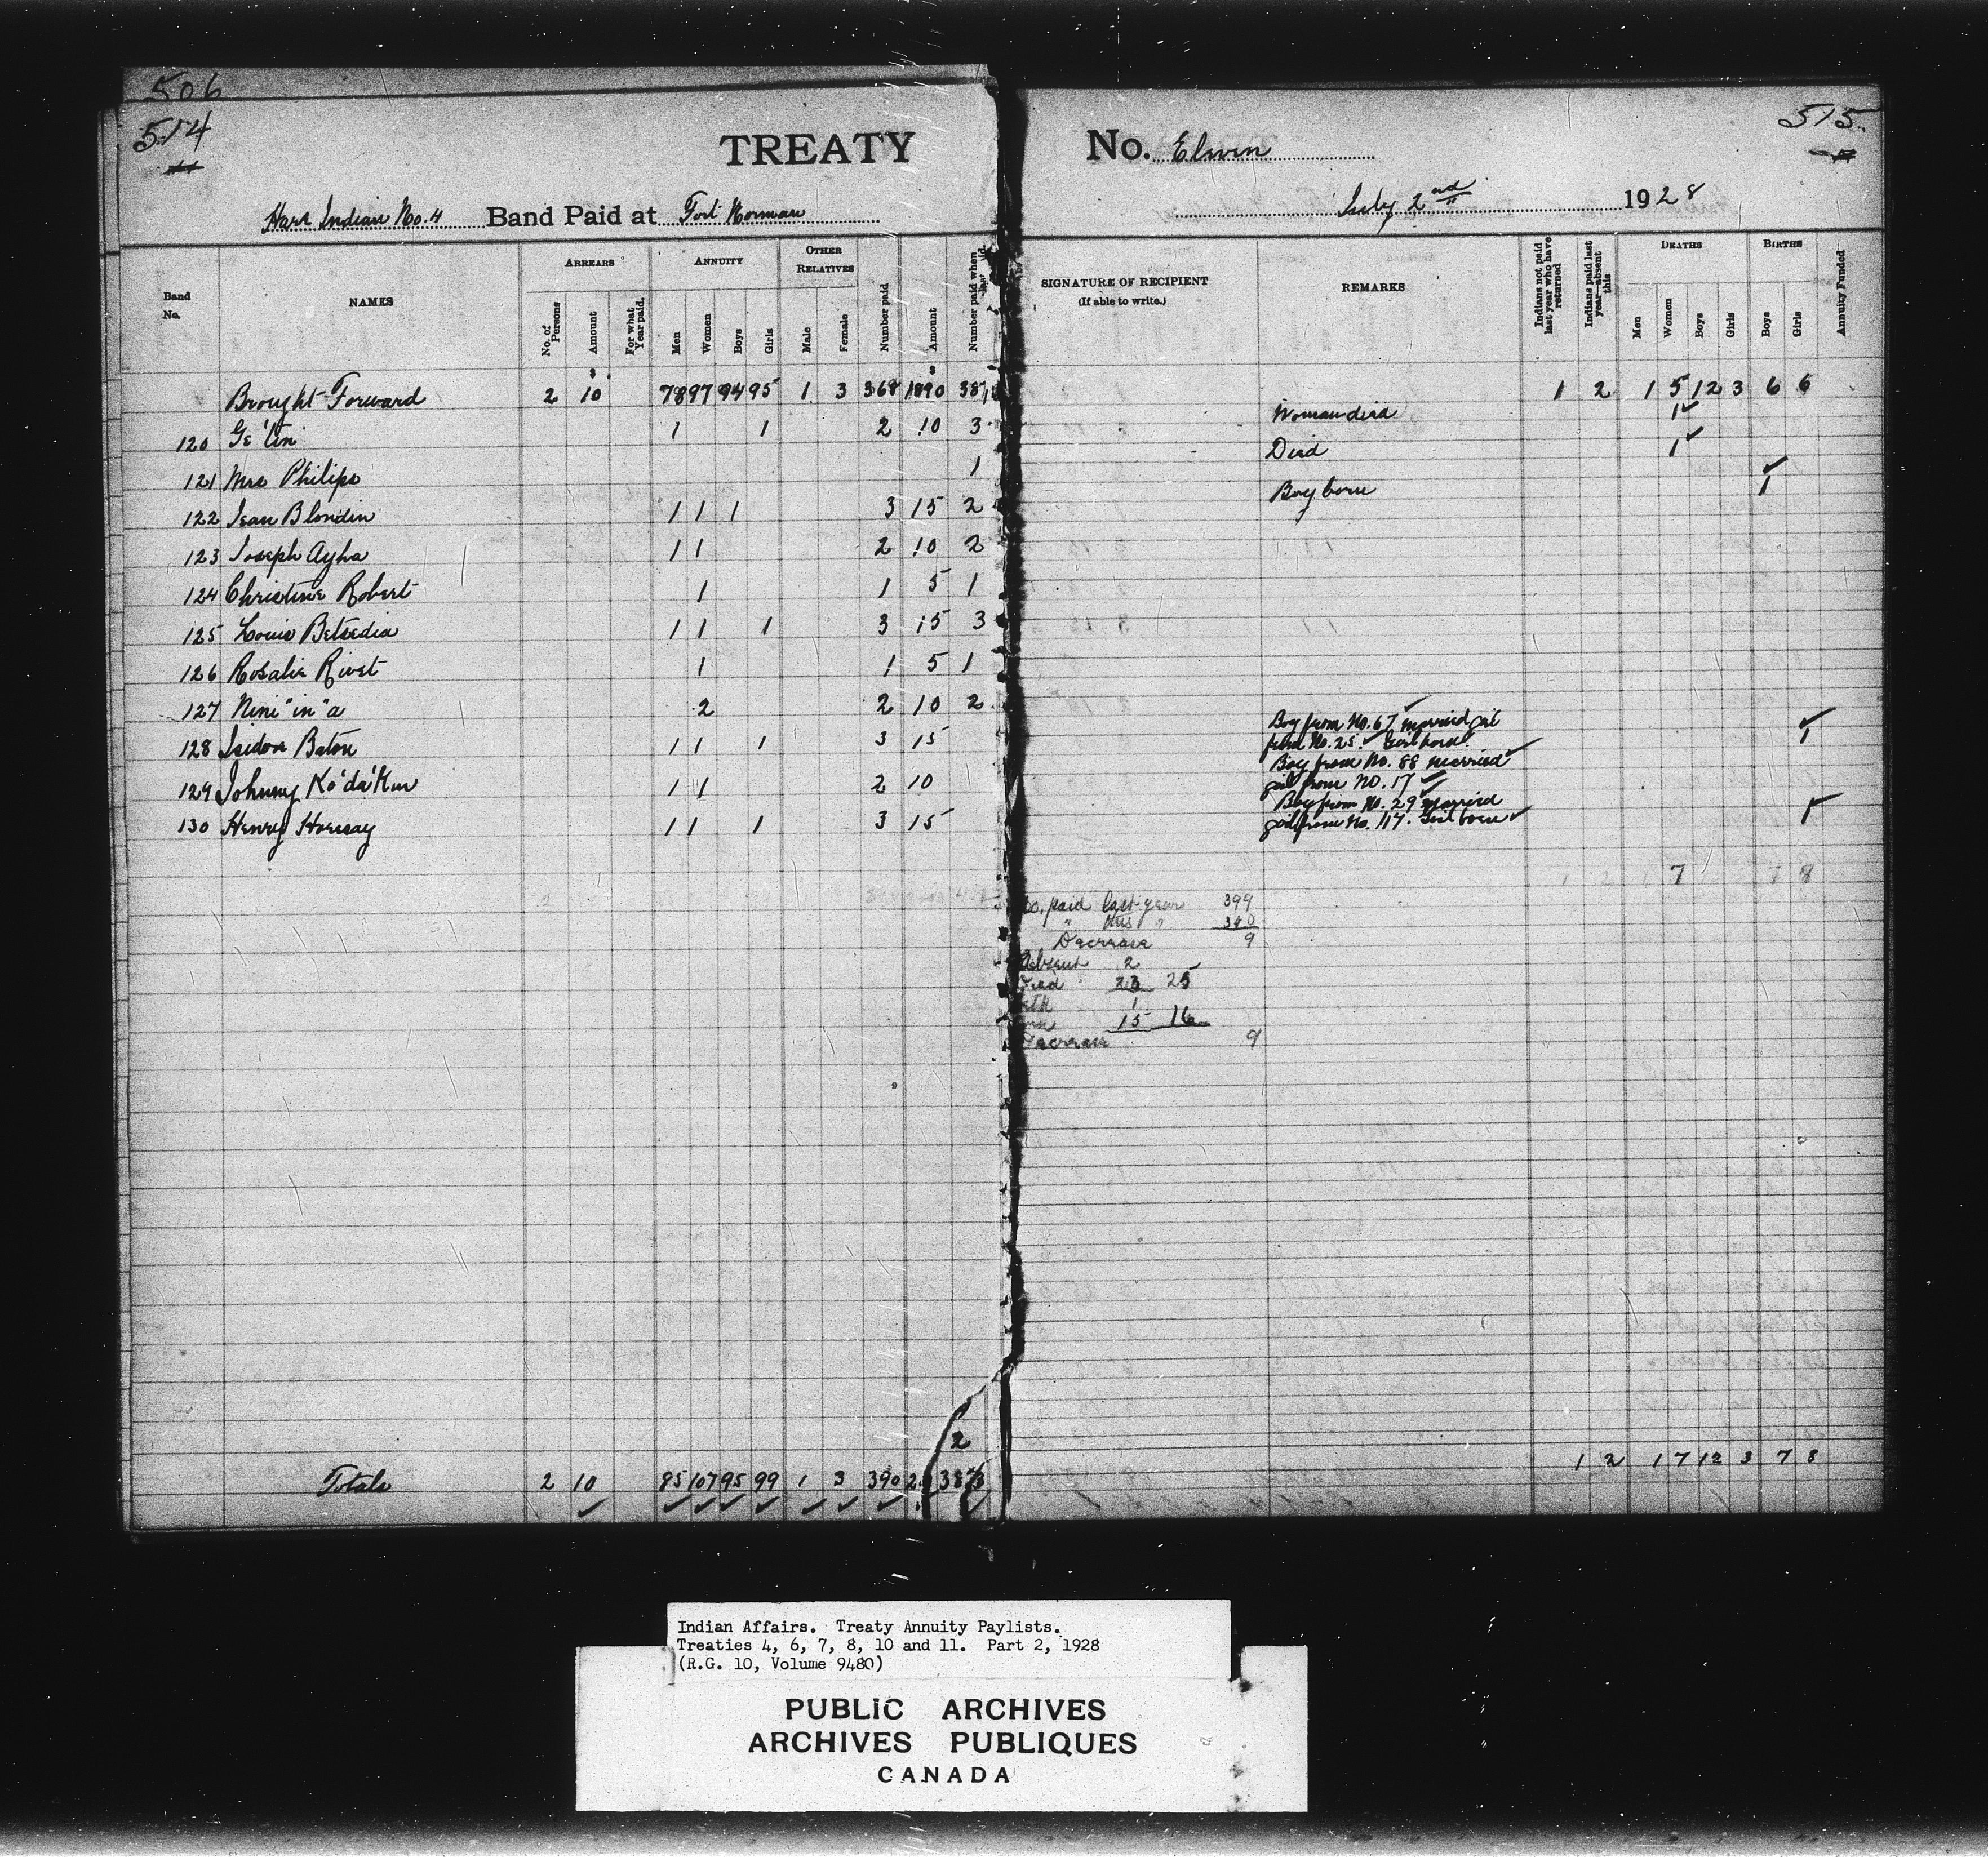 506
514
515.
TREATY No. Eleven
Hare Indian No. 4 Band Paid at Fort Norman July 2nd 1928
Band No.
NAMES
ARREARS
No. of Persons
Amount
For what Year paid.
ANNUITY
Men
Women
Boys
Girls
OTHER RELATIVES
Male
Female
Number paid
Amount
Number paid when
SIGNATURE OF RECIPIENT
(If able to write.)
REMARKS
Indians not paid last year who have returned
Indians paid last year—absent this
DEATHS
Men
Women
Boys
Girls
BIRTHS
Boys
Girls
Annuity Funded
Brought Forward 2 10 78 97 94 95 1 3 368 1890 387 1 2 1 5 12 3 6 6
120 Ge'tin 1 1 2 10 3 Woman died 1
121 Mrs Philips 1 Died 1
122 Jean Blondin 1 1 1 3 15 2 Boy born 1
123 Joseph Ayha 1 1 2 10 2
124 Christine Robert 1 1 5 1
125 Louis Betsedia 1 1 1 3 15 3
126 Rosalie Rivet 1 1 5 1
127 Nini"in"a 2 2 10 2
128 Isidon Baton 1 1 1 3 15 Boy from No. 67 married girl
from No. 25. Girl born. 1
129 Johnny Ko'da'Kin 1 1 2 10 Boy from No. 88 married
girl from No. 17
130 Henry Horsay 1 1 1 3 15 Boy from No. 29 married
girl from No. 117. Girl born 1
1 2 1 7 7 8
No. paid last year 399
" this " 390
Decrease 9
Absent 2
Died 23 25
1
15 16
Decrease 9
2
Totals 2 10 85 107 95 99 1 3 390 1 2 1 7 12 3 7 8
Indian Affairs. Treaty Annuity Paylists.
Treaties 4, 6, 7, 8, 10 and 11. Part 2, 1928
(R.G. 10, Volume 9480)
PUBLIC ARCHIVES
ARCHIVES PUBLIQUES
CANADA